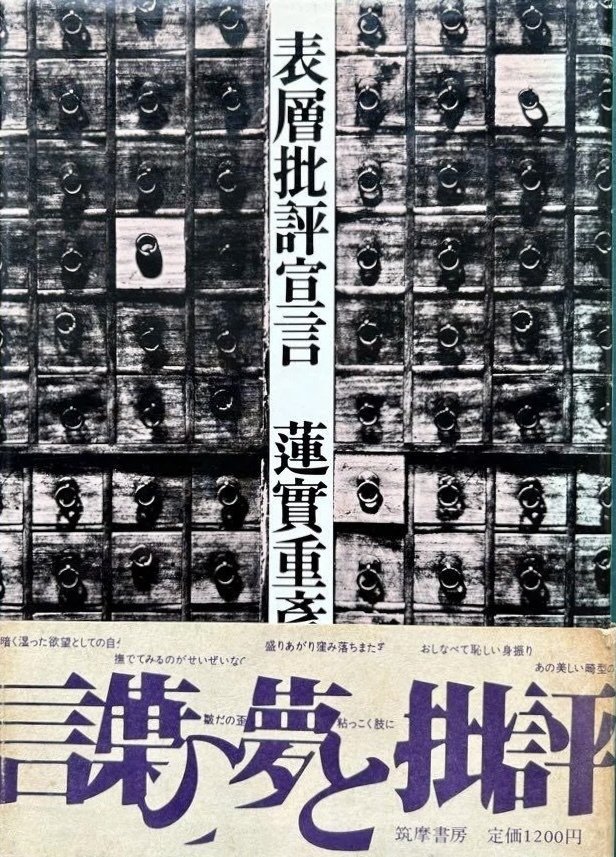 表層批評宣言 蓮實重彥
暗く湿った欲望としての自
撫でてみるのがせいぜいな
盛りあがり窪み落ちまた
おしなべて恥しい身振り
あの美しい畸型の
皺だの歪
粘っこく肢に
言葉の夢と批評
筑摩書房 定価1200円